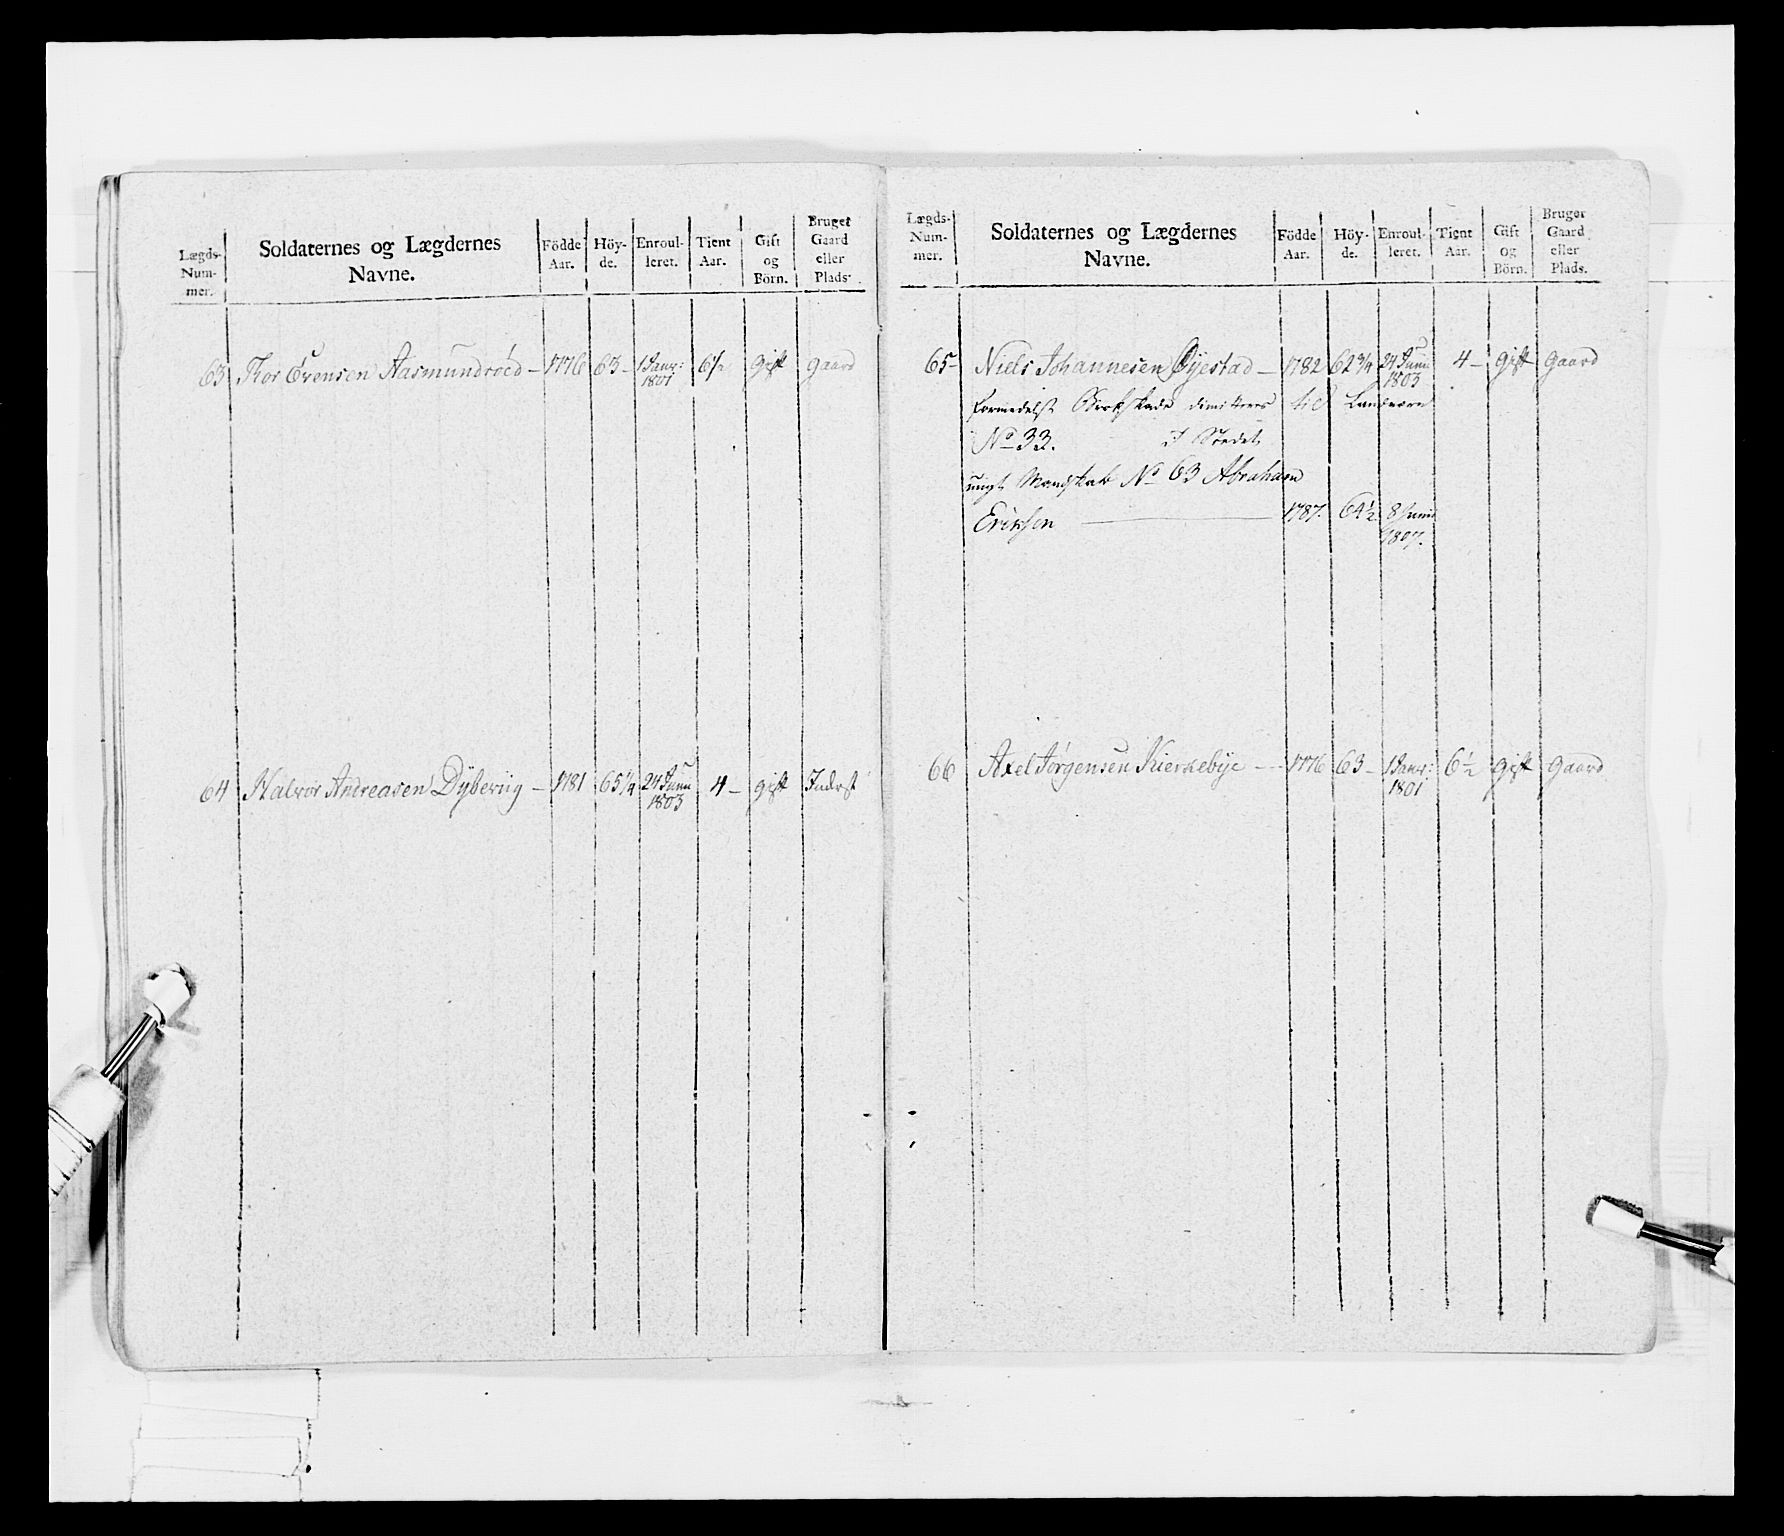 Lægds-Num-mer. | Soldaternes og Lægdernes Navne. | Födde Aar. | Höy-de. | Enroul-leret. | Tient Aar. | Gift og Börn. | Bruger Gaard eller Plads.
63 Thor Örensen Aasmundröed – 1776 63 – 1 Janr: 1801 6 1/2 Gift Gaard
64 Halvor Andreasen Dyberiig – 1781 65 1/4 24 Junii 1803 4 – gift Inderst
Lægds-Num-mer. | Soldaternes og Lægdernes Navne. | Födde Aar. | Höy-de. | Enroul-leret. | Tient Aar. | Gift og Börn. | Bruger Gaard eller Plads.
65 Niels Johannesen Øyestad – 1782 62 3/4 24 Junii 1803 4 – gift Gaard
formedelst Brokskade dimitteres til Landværn
No 33. I Stedet
ungt Mandskab No 63 Abraham
Eriksen – 1787. 64 1/2 8 Junii 1807.
66 Axel Jörgensen Kierkebye – 1776 63 – 1 Janr: 1801 6 1/2 gift Gaard